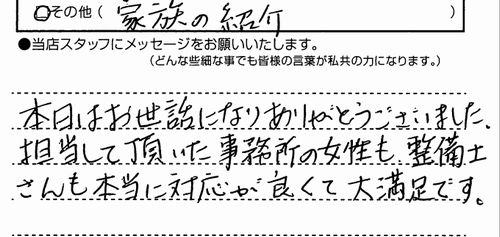 ○その他( 家族の紹介 )
●当店スタッフにメッセージをお願いいたします。
(どんな些細な事でも皆様の言葉が私共の力になります。)
本日はお世話になりありがとうございました。
担当して頂いた事務所の女性も整備士
さんも本当に対応が良くて大満足です。